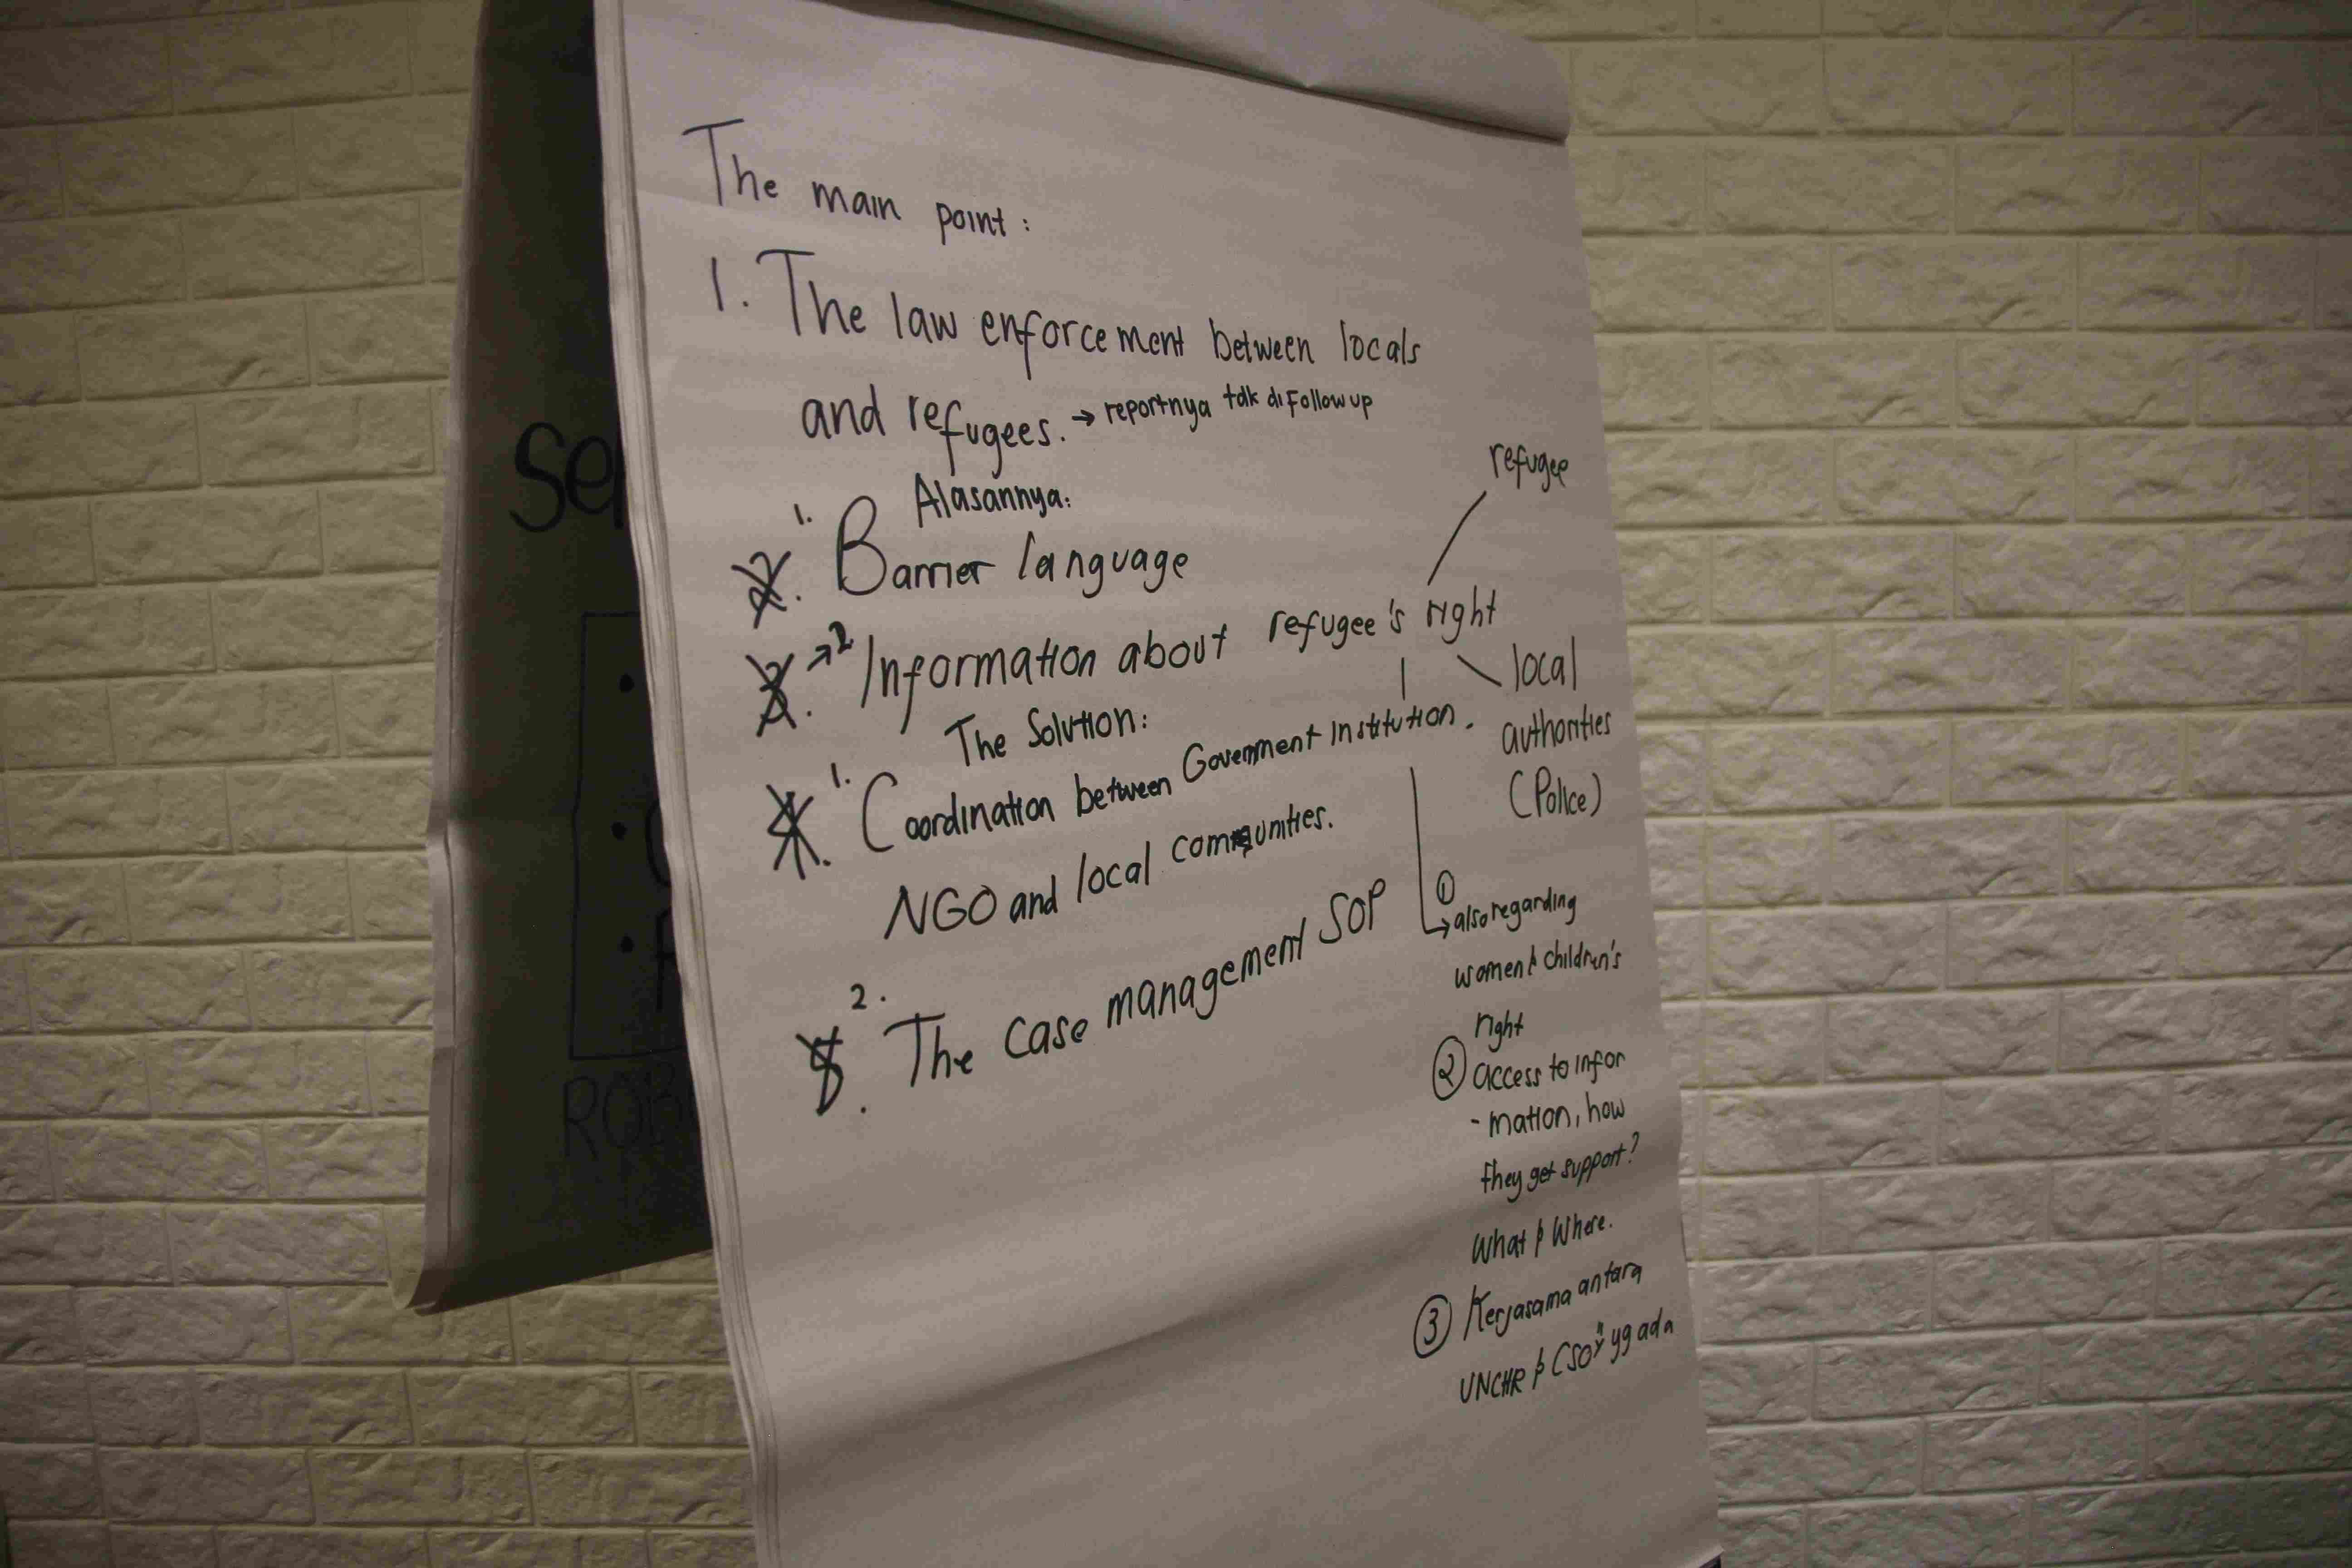 The main point :
1. The law enforcement between locals
and refugees. → reportnya tdk di Follow up
Alasannya:
1. Barrier language
→ 2 Information about refugee's right
refugee
local
authorities
(Police)
The Solution:
1. Coordination between Government Institution.
NGO and local communities.
2. The case management SOP
① also regarding
women & children's
right
② access to infor
- mation, how
they get support?
What & Where.
③ Kerjasama antara
UNCHR & CSO" yg ada